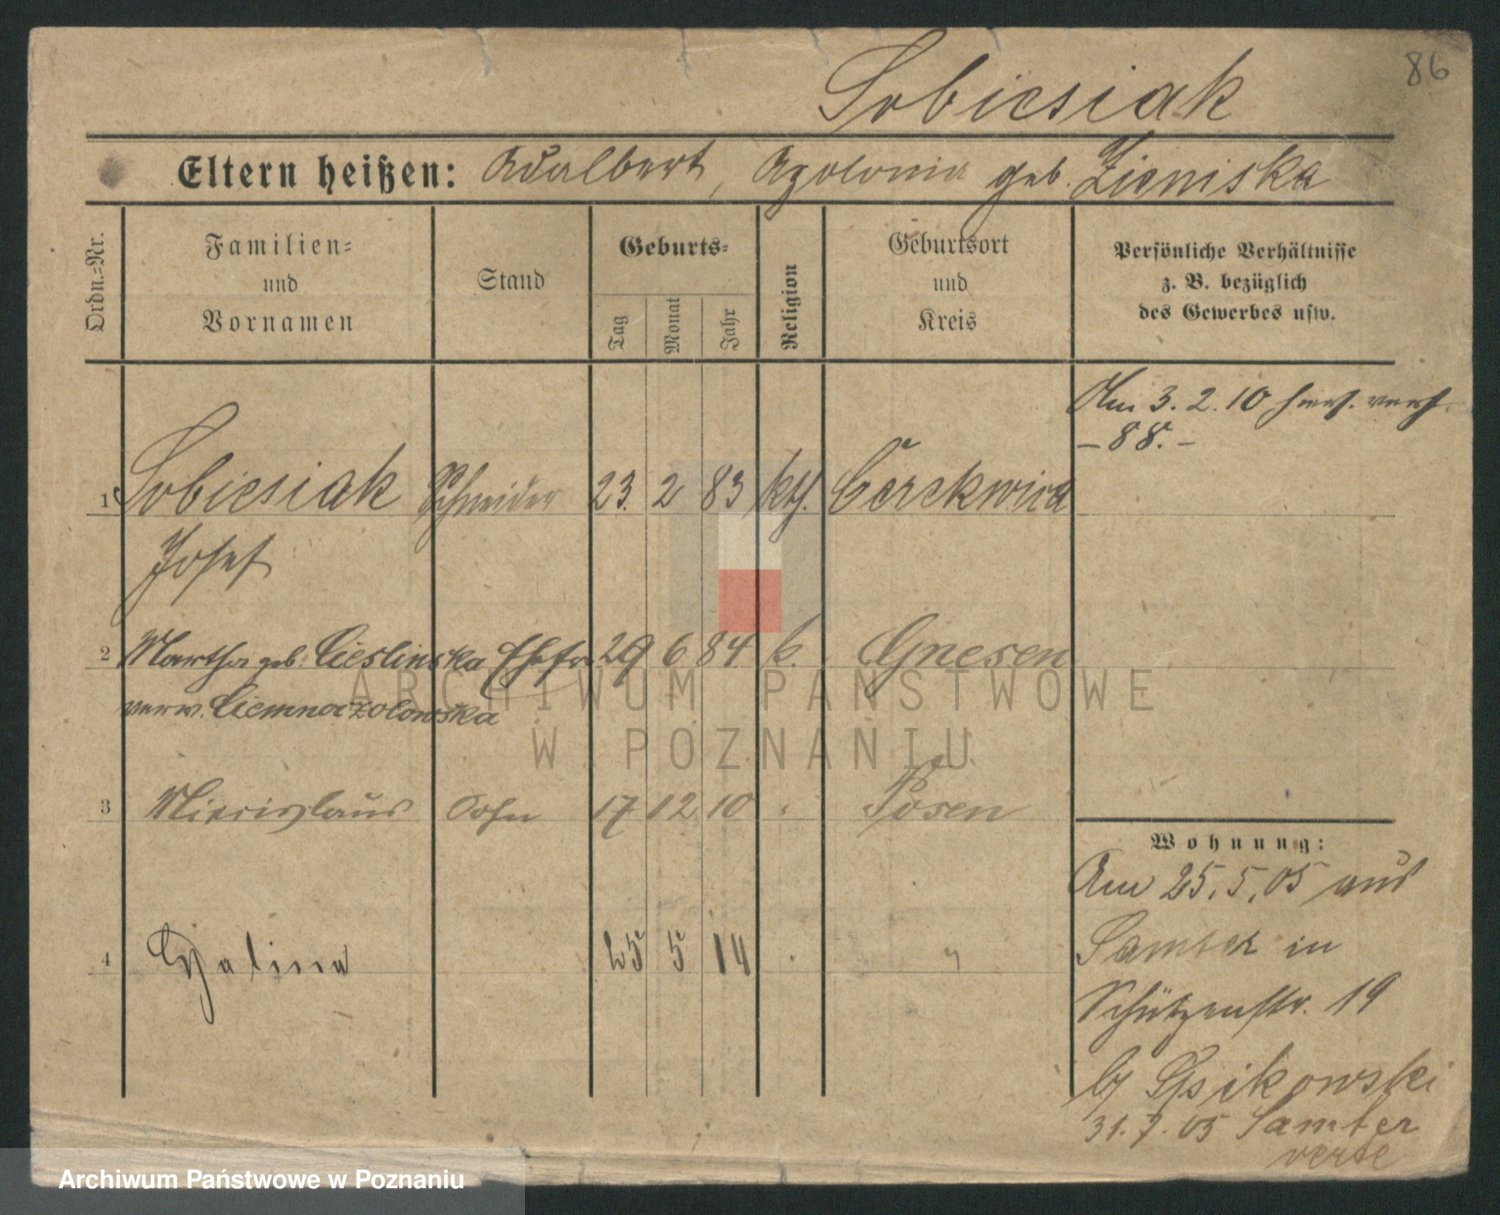 86
Sobiesiak
Eltern heißen: Adalbert, Apolonia geb. Zieniska
Ordn.-Nr.
Familien-
und
Vornamen
Stand
Geburts-
Tag
Monat
Jahr
Religion
Geburtsort
und
Kreis
Persönliche Verhältnisse
z. B. bezüglich
des Gewerbes usw.
Am 3. 2. 10 verh.
- 88. -
1 Sobiesiak Schneider 23. 2 83 kth. Cerekwica
Josef
2 Martha geb. Cieslinska Ehefr 29 6 84 k. Gnesen
verw. Ciemnoczolowska
3 Miecislaus Sohn 17 12 10 Posen
Wohnung:
Am 25. 5. 05 aus
Samter in
Schützenstr. 19
4 Halina 25 5 14 "
b/ Psikowski
31. 7. 05 Samter
verte
ARCHIWUM PAŃSTWOWE
W POZNANIU
Archiwum Państwowe w Poznaniu